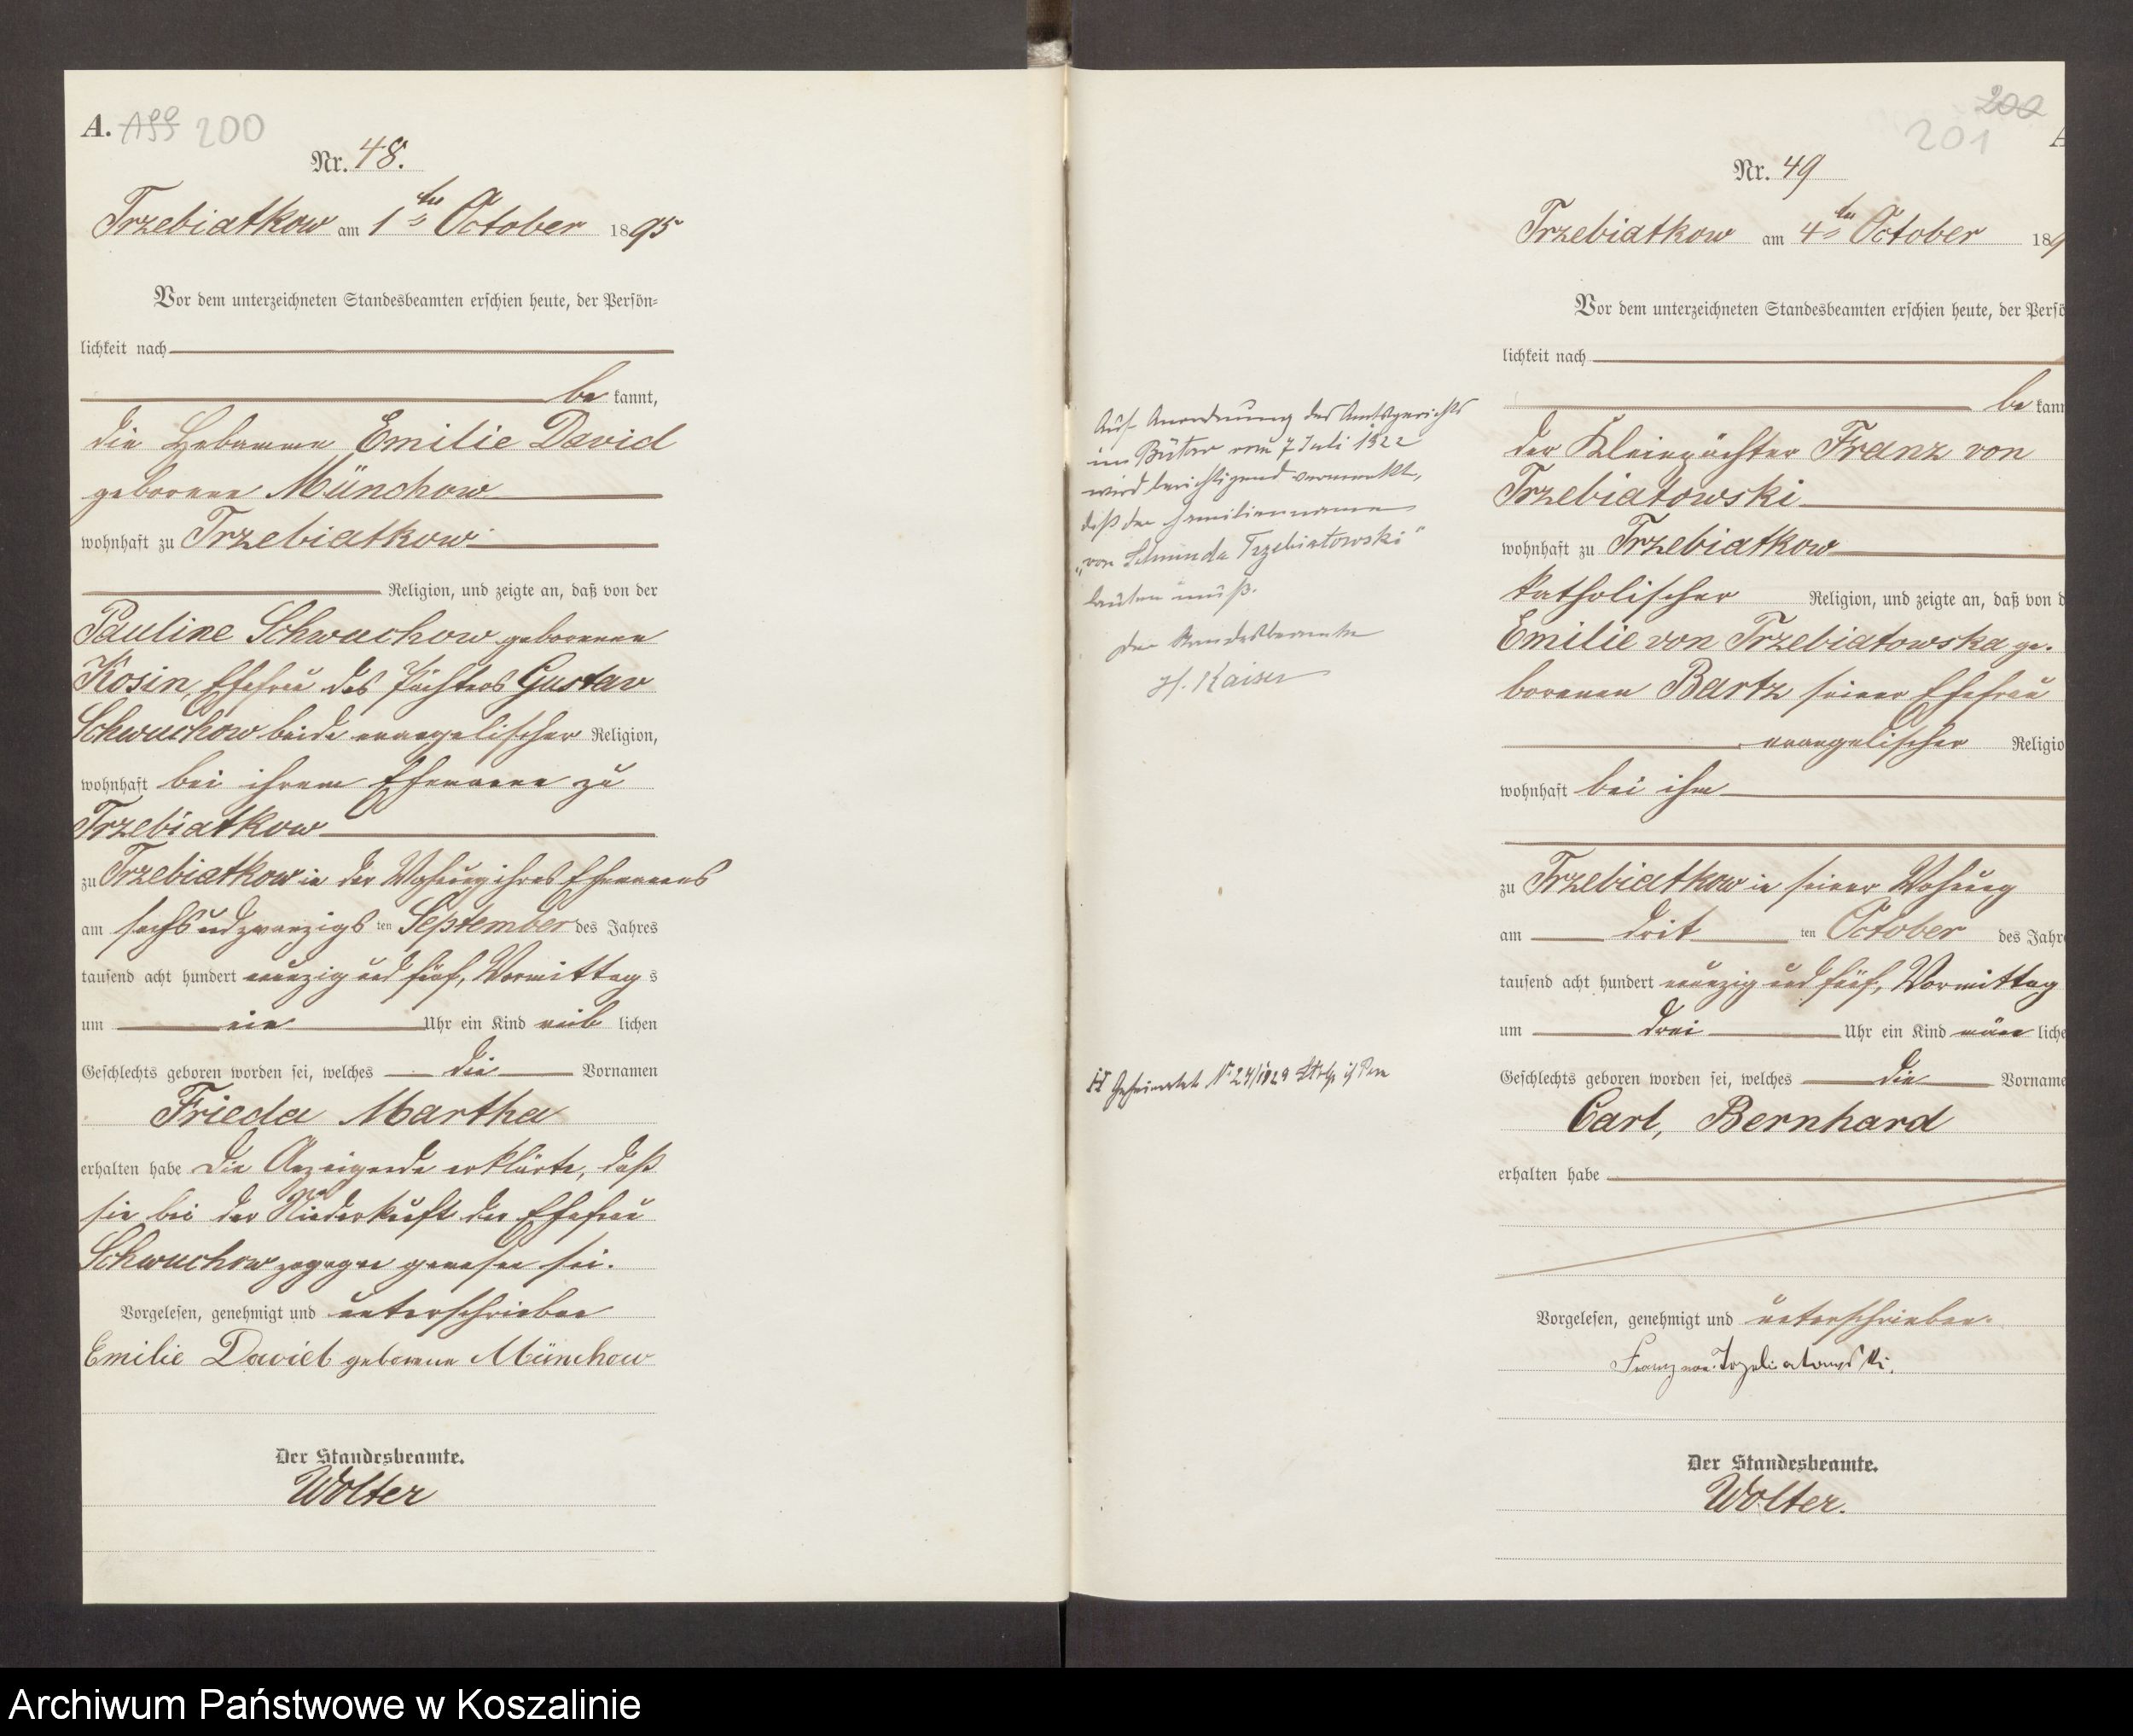 A. 199 200
Nr. 48.
Trzebiatkow am 1ten October 1895
Vor dem unterzeichneten Standesbeamten erschien heute, der Persön-
lichkeit nach
be kannt,
die Hebamme Emilie David
geborene Münchow
wohnhaft zu Trzebiatkow
Religion, und zeigte an, daß von der
Pauline Schwuchow geborenen
Kosin, Ehefrau des Pächters Gustav
Schwuchow beide evangelischer Religion,
wohnhaft bei ihrem Ehemann zu
Trzebiatkow
zu Trzebiatkow in der Wohung ihres Ehemanns
am sechsundzwanzigs ten September des Jahres
tausend acht hundert neunzig und fünf, Vormittag s
um ein Uhr ein Kind weib lichen
Geschlechts geboren worden sei, welches die Vornamen
Frieda Martha
erhalten habe Die Anzeigende erklärte, daß
sie bei der Niederkunft der Ehefrau
Schwuchow zugegen gewesen sei.
Vorgelesen, genehmigt und unterschrieben
Emilie David geborene Münchow
Der Standesbeamte.
Wolter
200
201
A
Nr. 49
Trzebiatkow am 4ten October 189
Vor dem unterzeichneten Standesbeamten erschien heute, der Persö
lichkeit nach
be kann
der Kleinpächter Franz von
Trzebiatowski
wohnhaft zu Trzebiatkow
katholischer Religion, und zeigte an, daß von d
Emilie von Trzebiatowska ge-
borenen Bartz seiner Ehefrau
evangelischer Religio
wohnhaft bei ihm
zu Trzebiatkow in seiner Wohung
am drit ten October des Jahre
tausend acht hundert neunzig und fünf, Vormittag
um drei Uhr ein Kind män liche
Geschlechts geboren worden sei, welches die Vorname
Carl, Bernhard
erhalten habe
Vorgelesen, genehmigt und unterschrieben.
Franz von Trzebiatowski.
Der Standesbeamte.
Wolter.
Auf Anordnung des Amtsgerichts
in Bütow vom 7 Juli 1922
wird berichtigend vermerkt,
daß der Familienname
„von Schmude Trzebiatowski"
lauten muß.
Der Standesbeamte
H. Kaiser
N. 24/1929
Archiwum Państwowe w Koszalinie